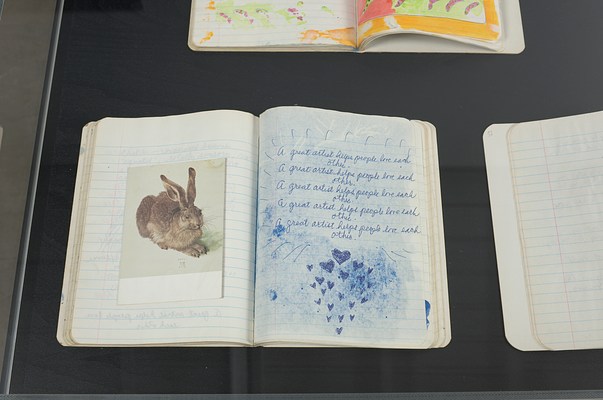 A great artist helps people love each
other.
A great artist helps people love each
other.
A great artist helps people love each
other.
A great artist helps people love each
other.
A great artist helps people love each
other.